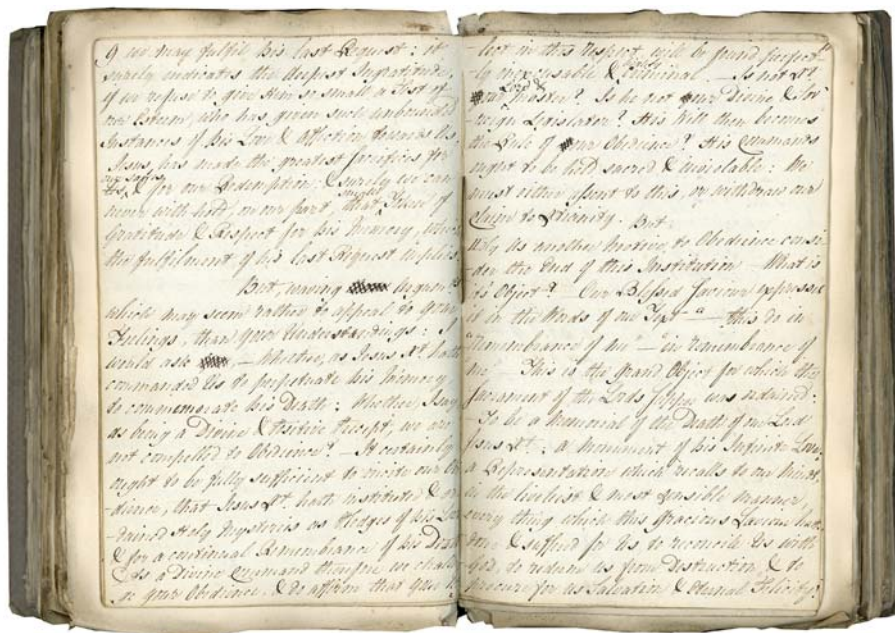 9 we may fulfil his last Request: it
surely indicates the deepest Ingratitude,
if we refuse to give Him so small a Test of
our Esteem, who has given such unbounded
Instances of his Love & Affection towards Us.
Jesus has made the greatest Sacrifices for
our sakes
& for our Redemption: & surely we can
never with-hold, on our part, that Tribute of
Gratitude & Respect for his Memory, which
the fulfilment of his last Request implies.
But, waving Argum.ts
which may seem rather to appeal to your
Feelings, than your Understandings: I
would ask, — Whether, as Jesus Xt. hath
commanded Us to perpetuate his Memory,
to commemorate his Death: Whether, I say,
as being a Divine & Positive Precept, we are
not compelled to Obedience? — It certainly
ought to be fully sufficient to excite our Obe-
dience, that Jesus Xt. hath instituted & or-
-dained Holy Mysteries as Pledges of his Love
& for a continual Remembrance of his Death
As a Divine Command therefore we
your Obedience, & do affirm that your
-lect in this respect, will be found perfect-
-ly inexcusable & criminal. — Is not Xt.
Lord &
our Master? Is he not our Divine & Sov-
-reign Legislator? His Will then becomes
the Rule of our Obedience? His Commands
ought to be held sacred & inviolable: We
must either assent to this, or withdraw our
Claim to Xtianity. But
as another Motive to Obedience consi-
der the End of this Institution — What is
its Object? — Our Blessed Saviour expresses
it in the Words of our Text — " — this do in
"remembrance of me" — "in remembrance of
me — This is the grand Object for which the
Sacrament of the Lord's Supper was ordained.
— To be a Memorial of the Death of our Lord
Jesus Xt.: a Monument of his Infinite Love:
a Representation which recalls to our Minds,
in the liveliest & most sensible manner,
every thing which this Gracious Saviour hath
done & suffered for Us to reconcile Us with
God, to redeem us from Destruction & to
procure for us Salvation & Eternal Felicity.